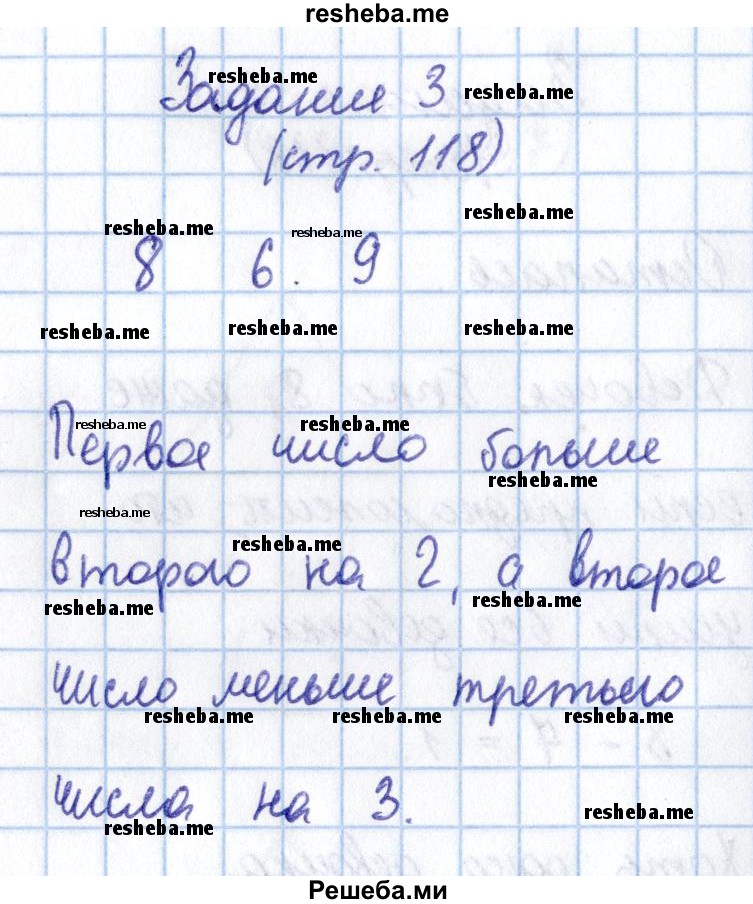 resheba.me
Задание 3
resheba.me resheba.me
(стр. 118)
resheba.me resheba.me
resheba.me
8 6. 9
resheba.me resheba.me resheba.me
resheba.me resheba.me
Первое число больше
resheba.me
resheba.me
resheba.me
второго на 2, а второе
resheba.me resheba.me
число меньше третьего
resheba.me resheba.me resheba.me
числа на 3.
resheba.me resheba.me
Решеба.ми